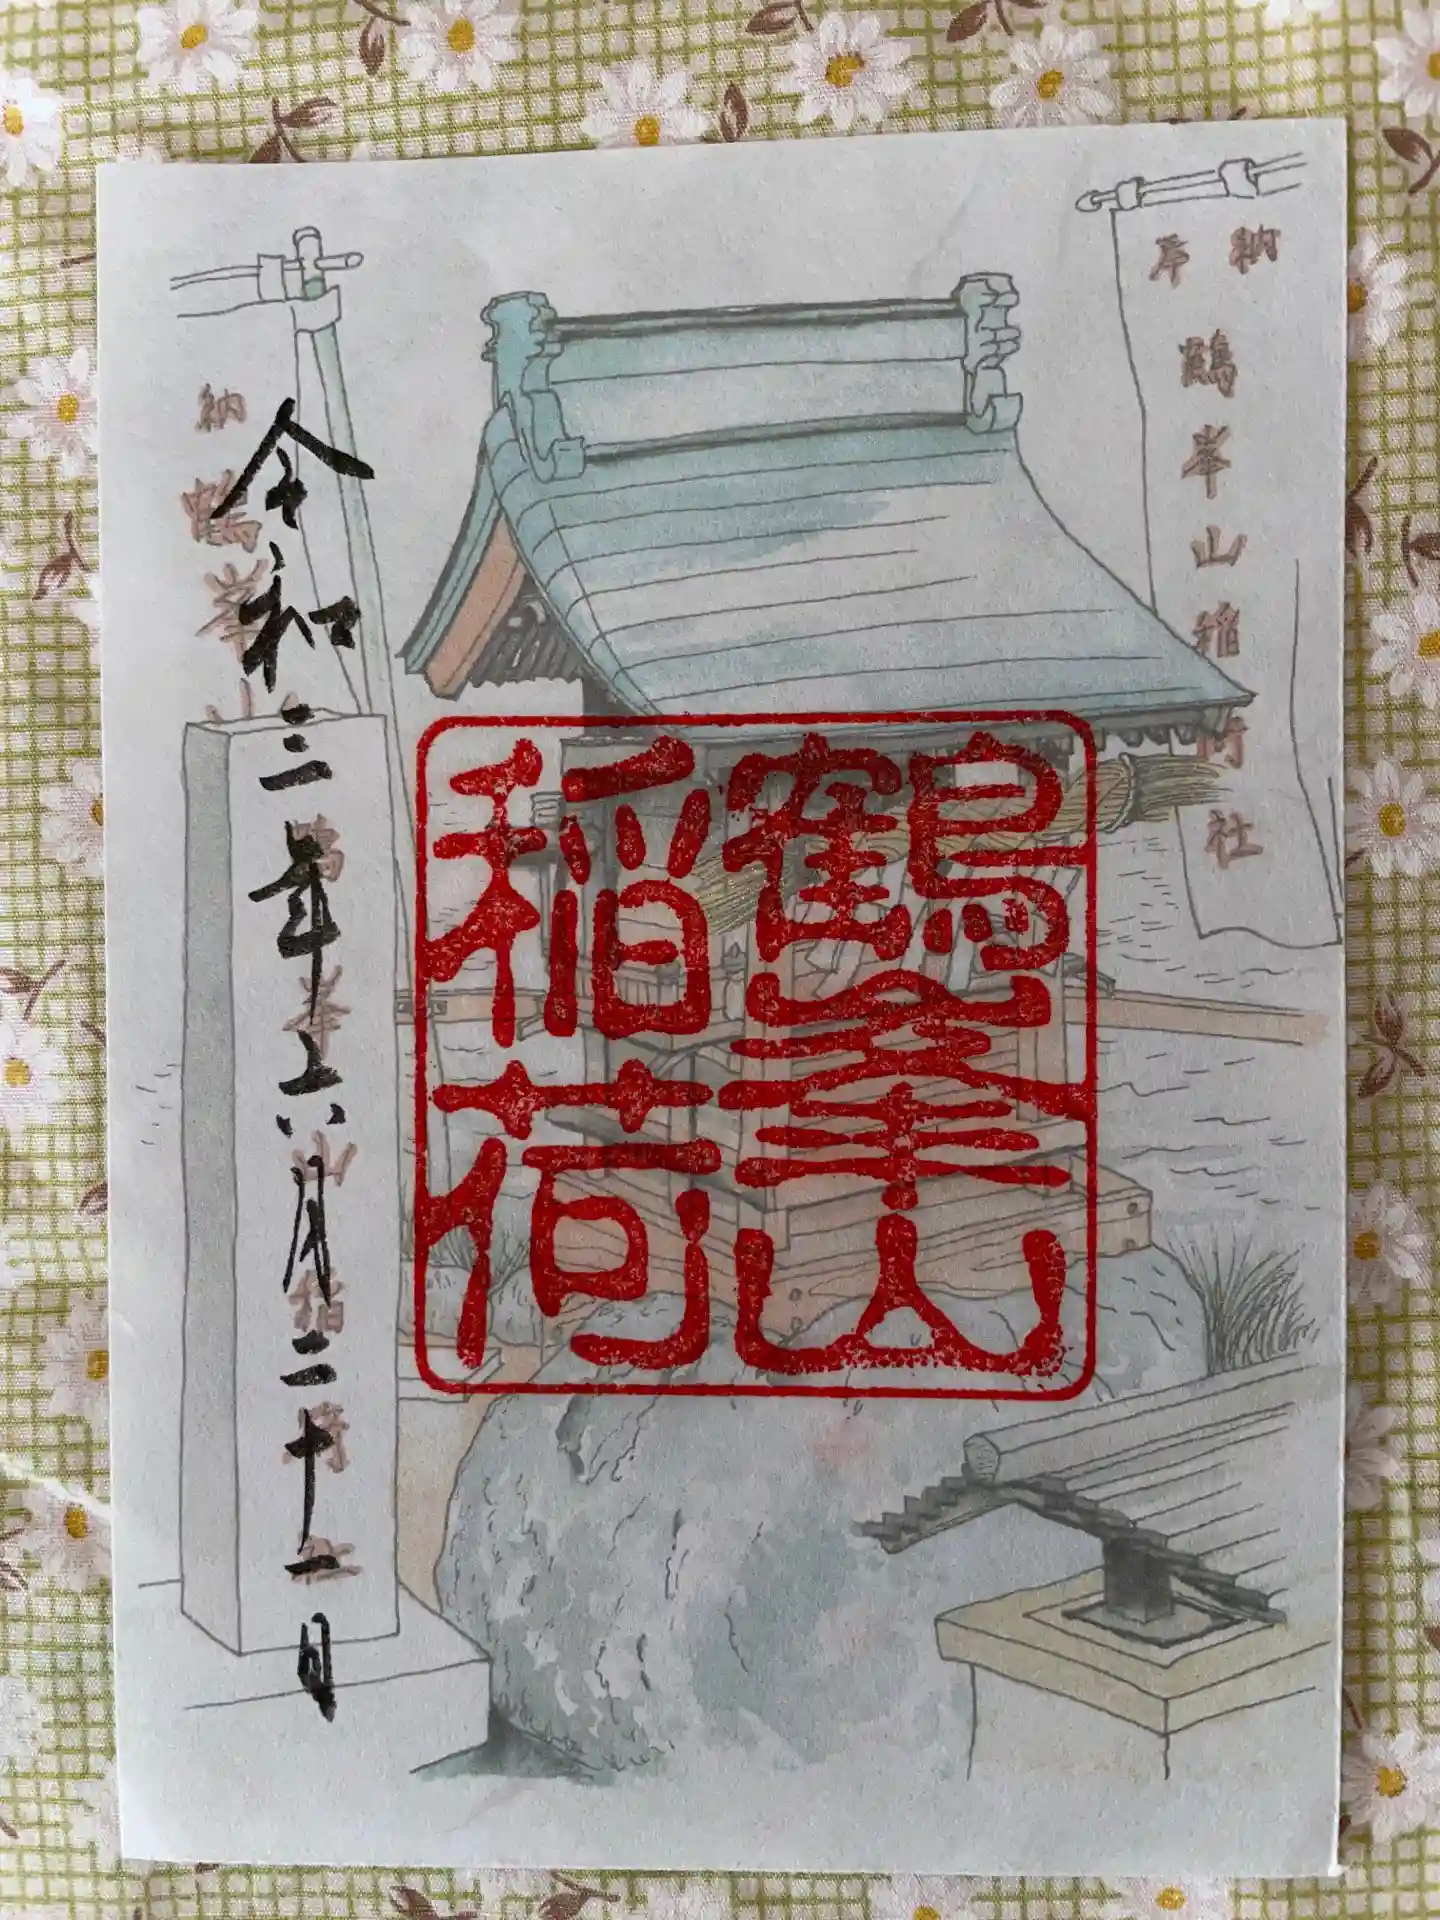 奉納
鶴峯山稲荷社
鶴峯山
稲荷
納
鶴峯
鶴峯山稲荷社
令和三年六月二十一日